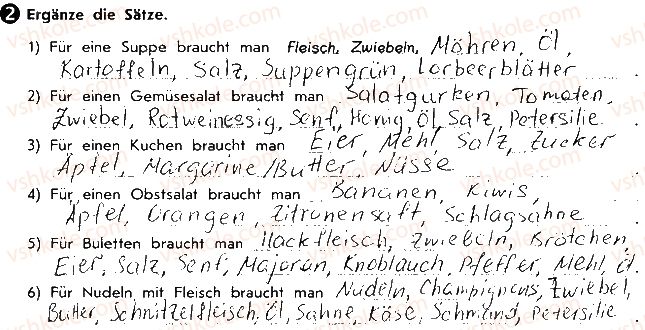 2 Ergänze die Sätze.
1) Für eine Suppe braucht man Fleisch, Zwiebeln, Möhren, Öl,
Kartoffeln, Salz, Suppengrün, Lorbeerblätter.
2) Für einen Gemüsesalat braucht man Salatgurken, Tomaten,
Zwiebel, Rotweinessig, Senf, Honig, Öl, Salz, Petersilie.
3) Für einen Kuchen braucht man Eier, Mehl, Salz, Zucker
Äpfel, Margarine/Butter, Nüsse.
4) Für einen Obstsalat braucht man Bananen, Kiwis,
Äpfel, Orangen, Zitronensaft, Schlagsahne.
5) Für Buletten braucht man Hackfleisch, Zwiebeln, Krötchen,
Eier, Salz, Senf, Majoran, Knoblauch, Pfeffer, Mehl, Öl.
6) Für Nudeln mit Fleisch braucht man Nudeln, Champignons, Zwiebel,
Butter, Schnitzelfleisch, Öl, Sahne, Käse, Schmand, Petersilie.